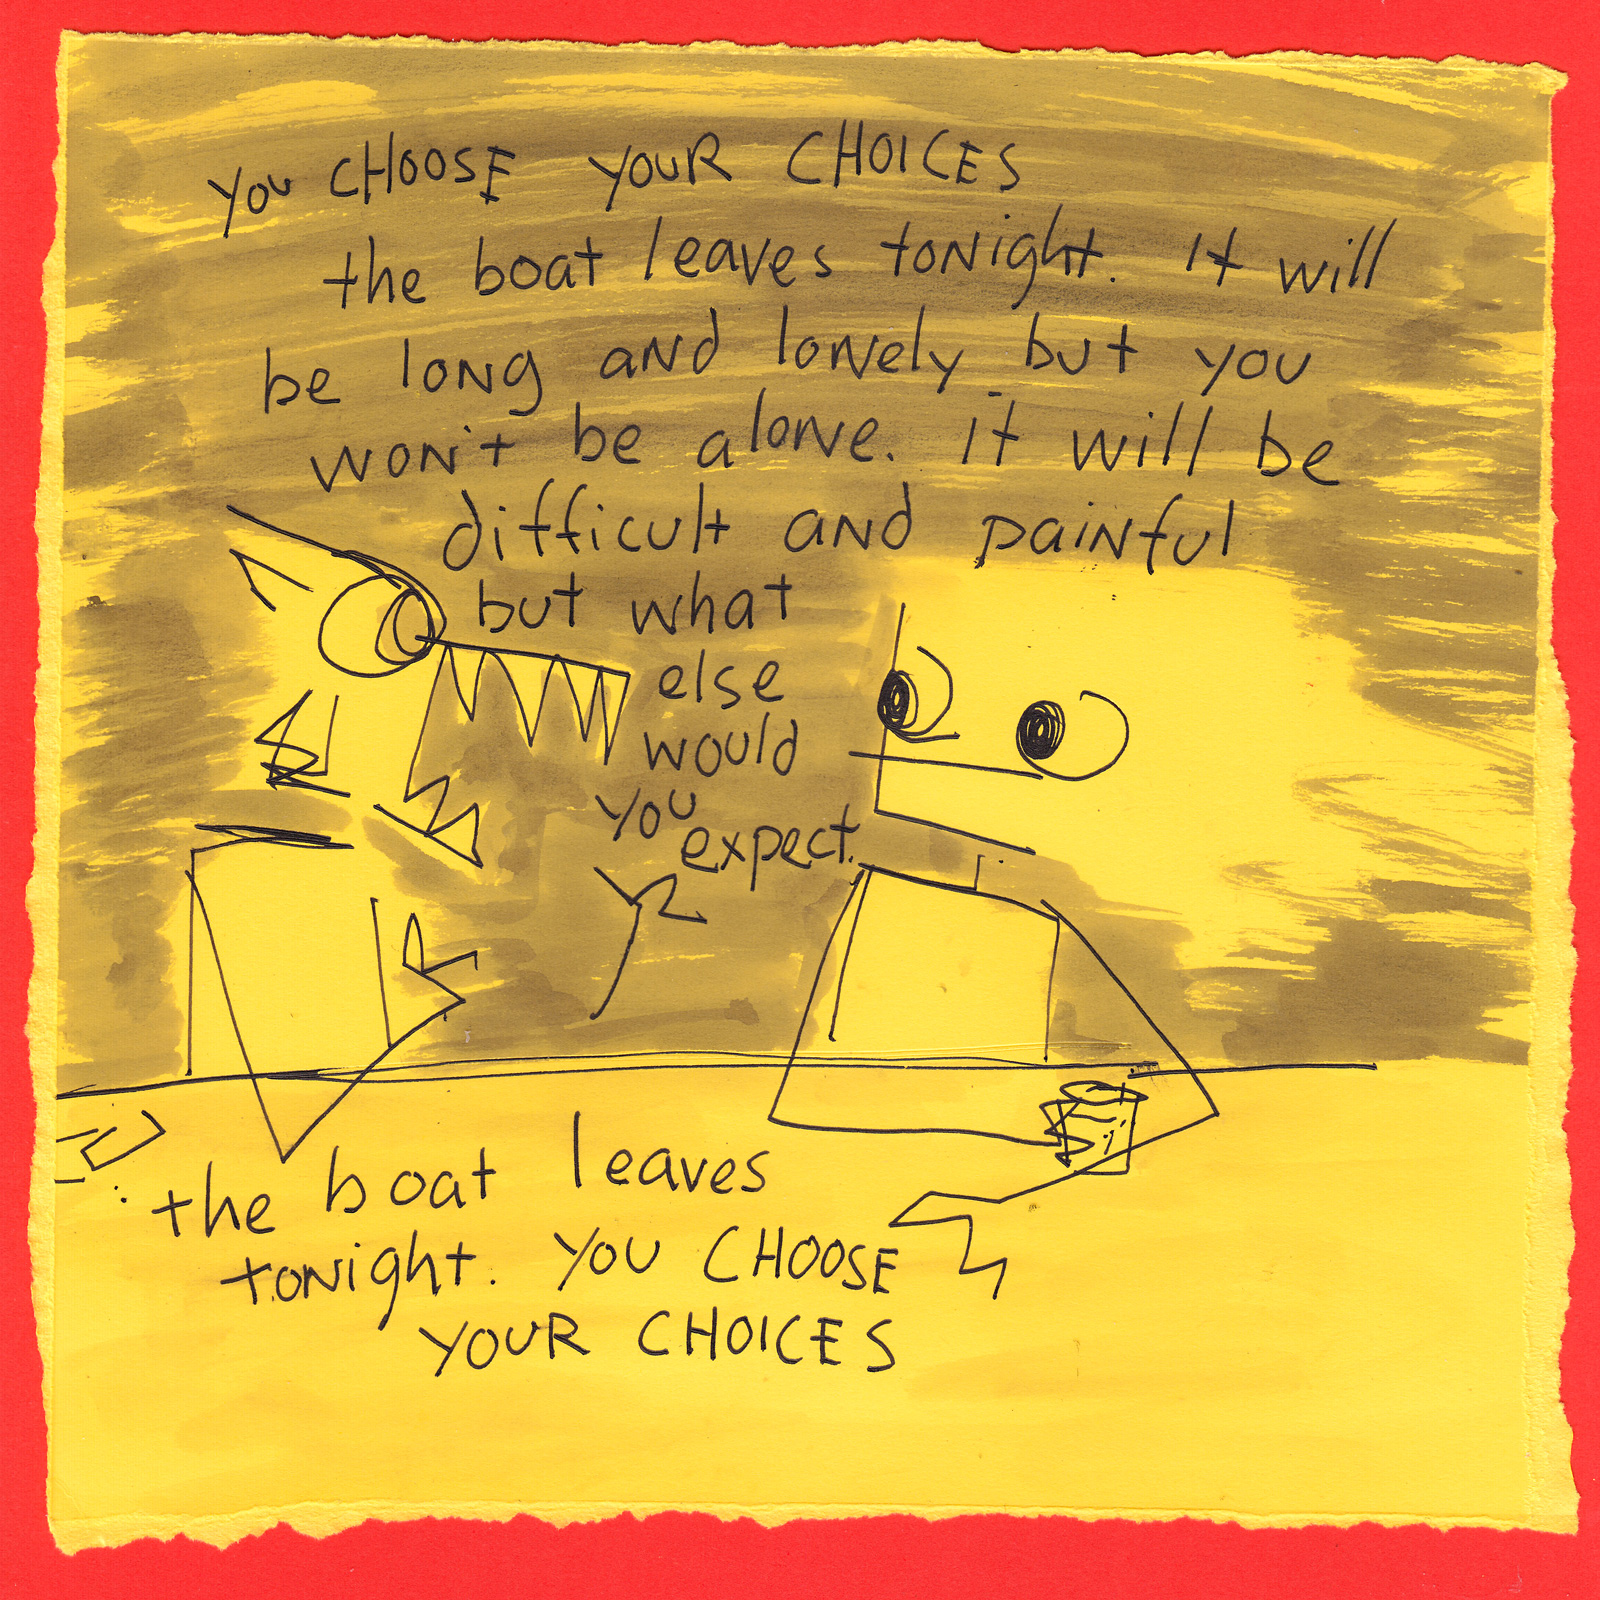 you CHOOSE YOUR CHOICES
the boat leaves tonight. It will
be long and lonely but you
won't be alone. it will be
difficult and painful
but what
else
would
you
expect.
the boat leaves
tonight. YOU CHOOSE
YOUR CHOICES